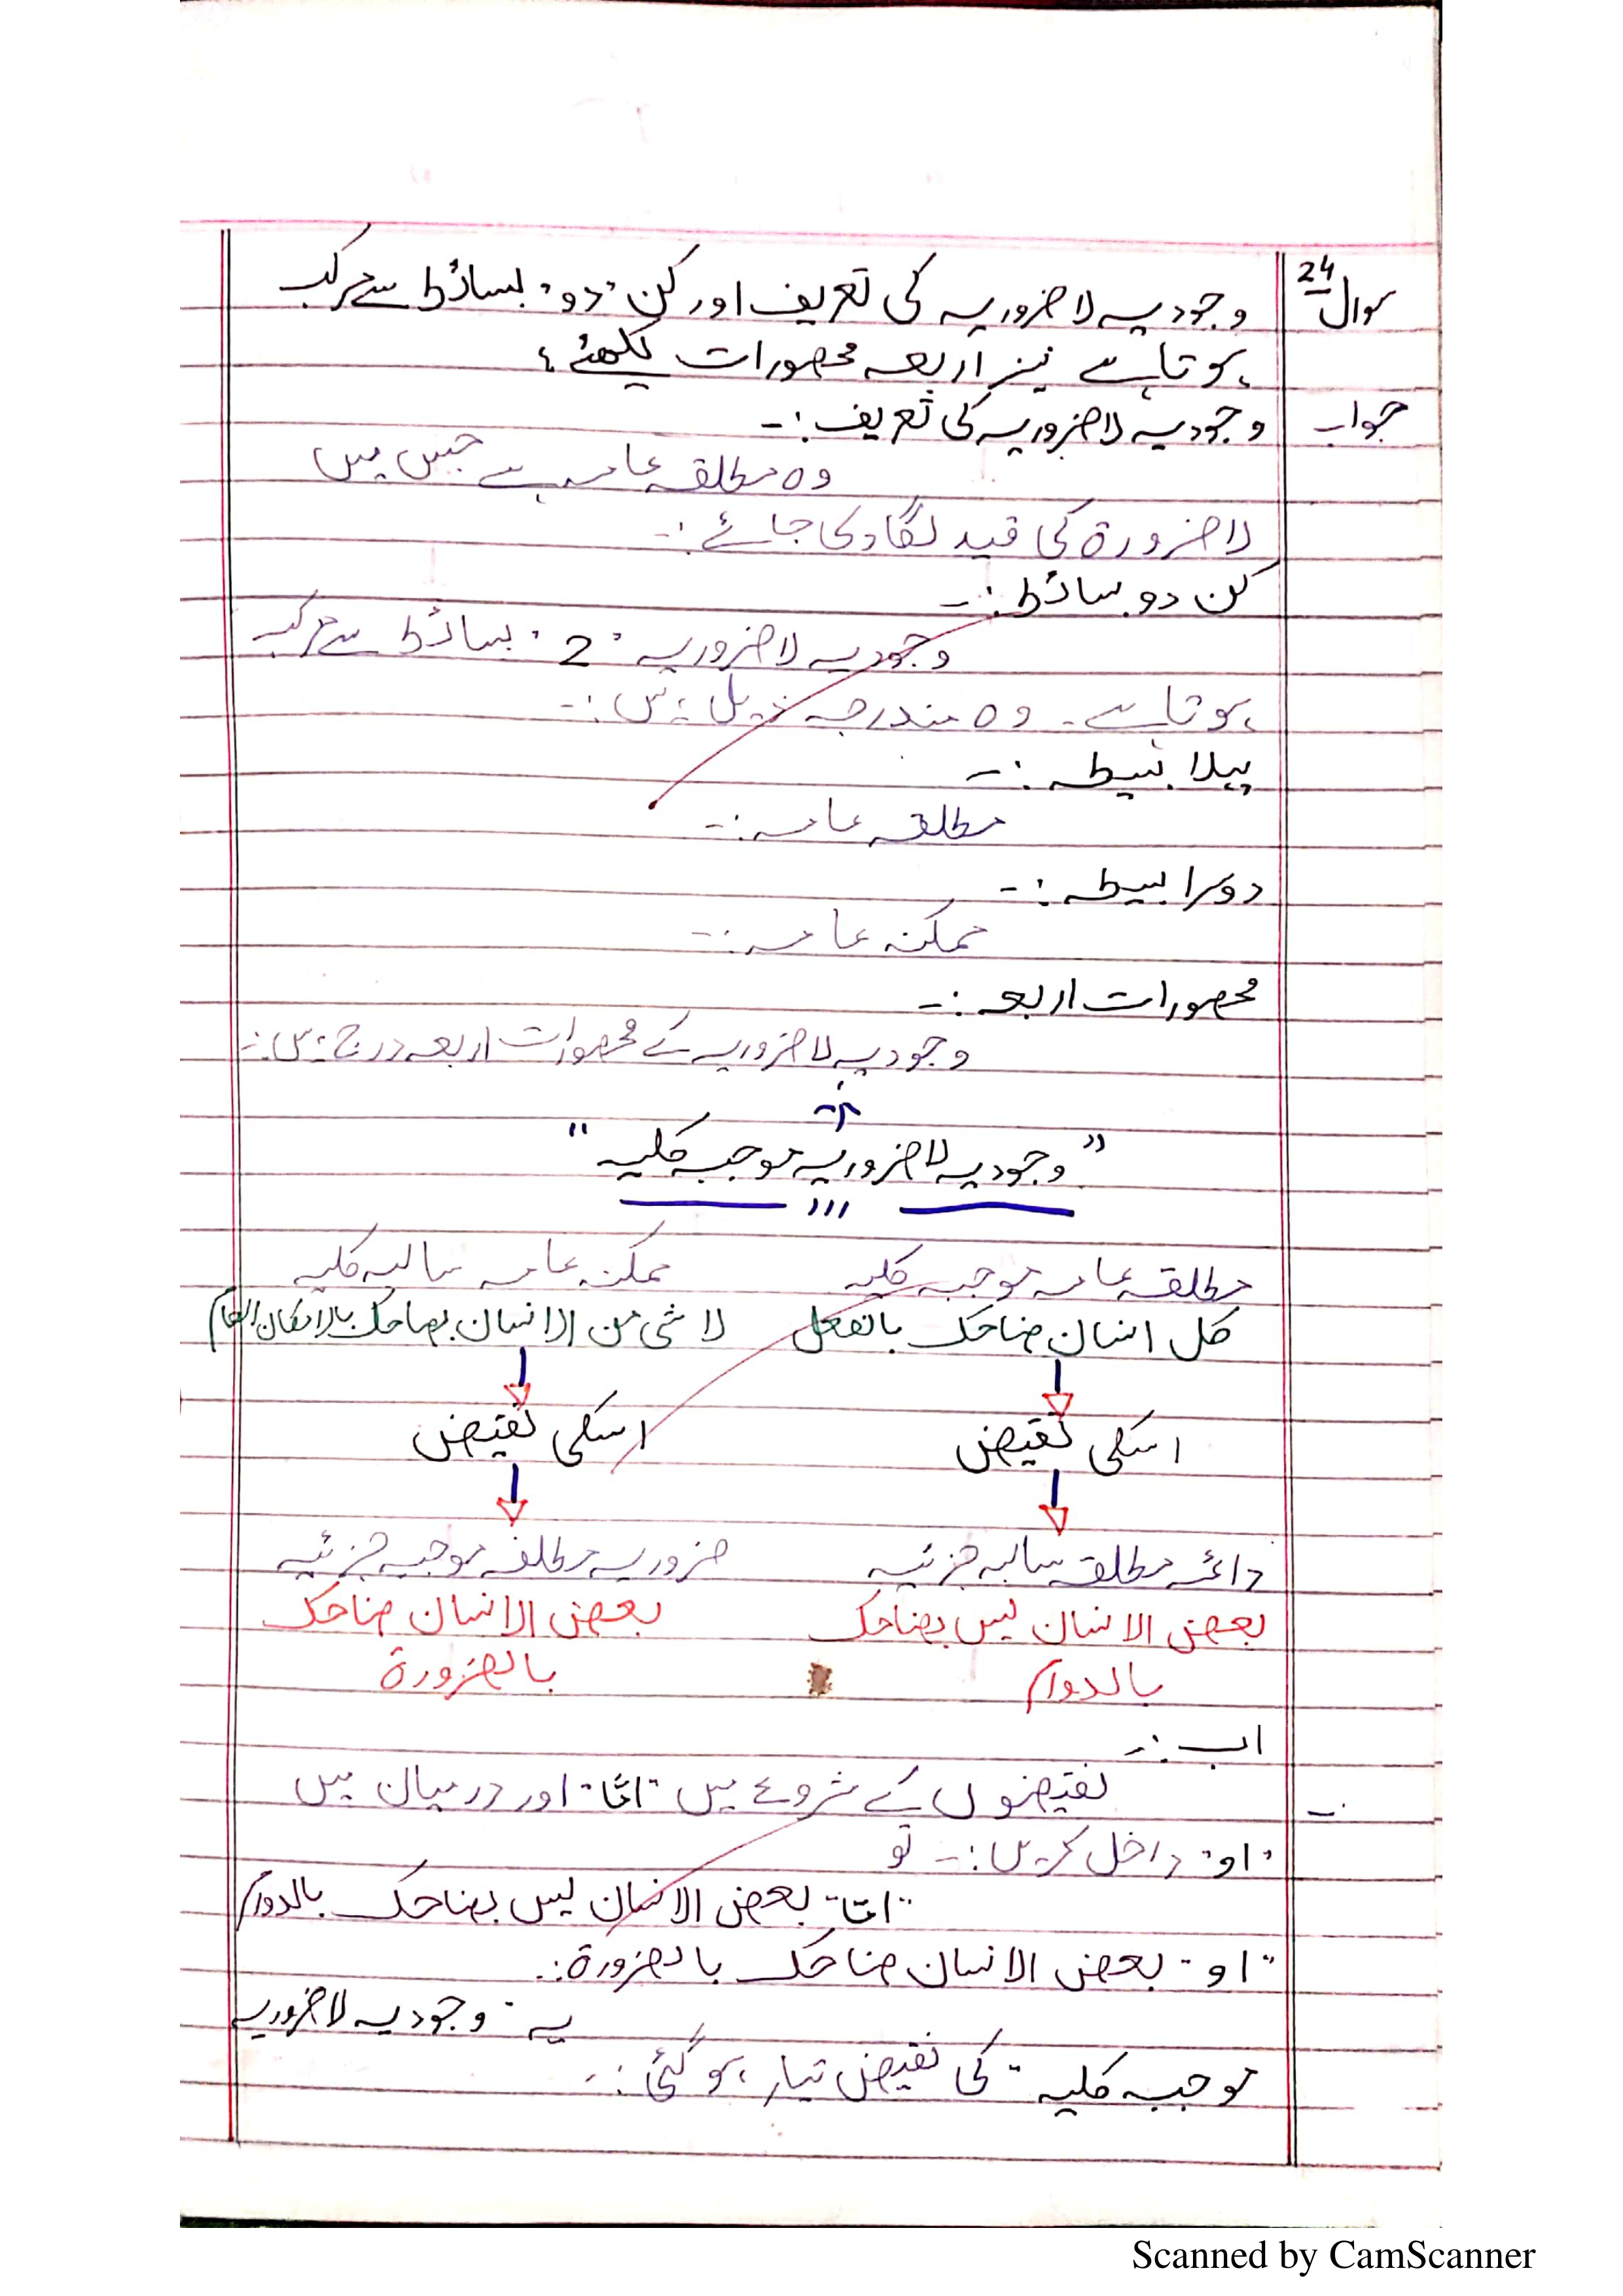 سوال 24 وجودیہ لاضروریہ کی تعریف اور کن "دو" بسائط سے مرکب
ہوتا ہے نیز اربعہ محصورات لکھئے؟
جواب وجودیہ لاضروریہ کی تعریف:-
وہ مطلقہ عامہ ہے جس میں
لا ضرورۃ کی قید لگا دی جائے:-
کن دو بسائط:-
وجودیہ لاضروریہ "2" بسائط سے مرکب
ہوتا ہے۔ وہ مندرجہ ذیل ہیں:-
پہلا بسیطہ:-
مطلقہ عامہ:-
دوسرا بسیطہ:-
ممکنہ عامہ:-
محصورات اربعہ:-
وجودیہ لاضروریہ کے محصورات اربعہ درج ہیں:-
"وجودیہ لاضروریہ موجبہ کلیہ"
مطلقہ عامہ موجبہ کلیہ ممکنہ عامہ سالبہ کلیہ
کل انسان ضاحک بالفعل لا شئ من الانسان بضاحک بالامکان العام
اسکی نقیض اسکی نقیض
دائمہ مطلقہ سالبہ جزئیہ ضروریہ مطلقہ موجبہ جزئیہ
بعض الانسان لیس بضاحک بعض الانسان ضاحک
بالدوام بالضرورۃ
اب:-
نقیضوں کے شروع میں "امّا" اور درمیان میں
"او" داخل کریں:- تو
"امّا" بعض الانسان لیس بضاحک بالدوام
"او" بعض الانسان ضاحک بالضرورۃ:-
یہ "وجودیہ لاضروریہ
موجبہ کلیہ" کی نقیض تیار ہو گئی:-
Scanned by CamScanner